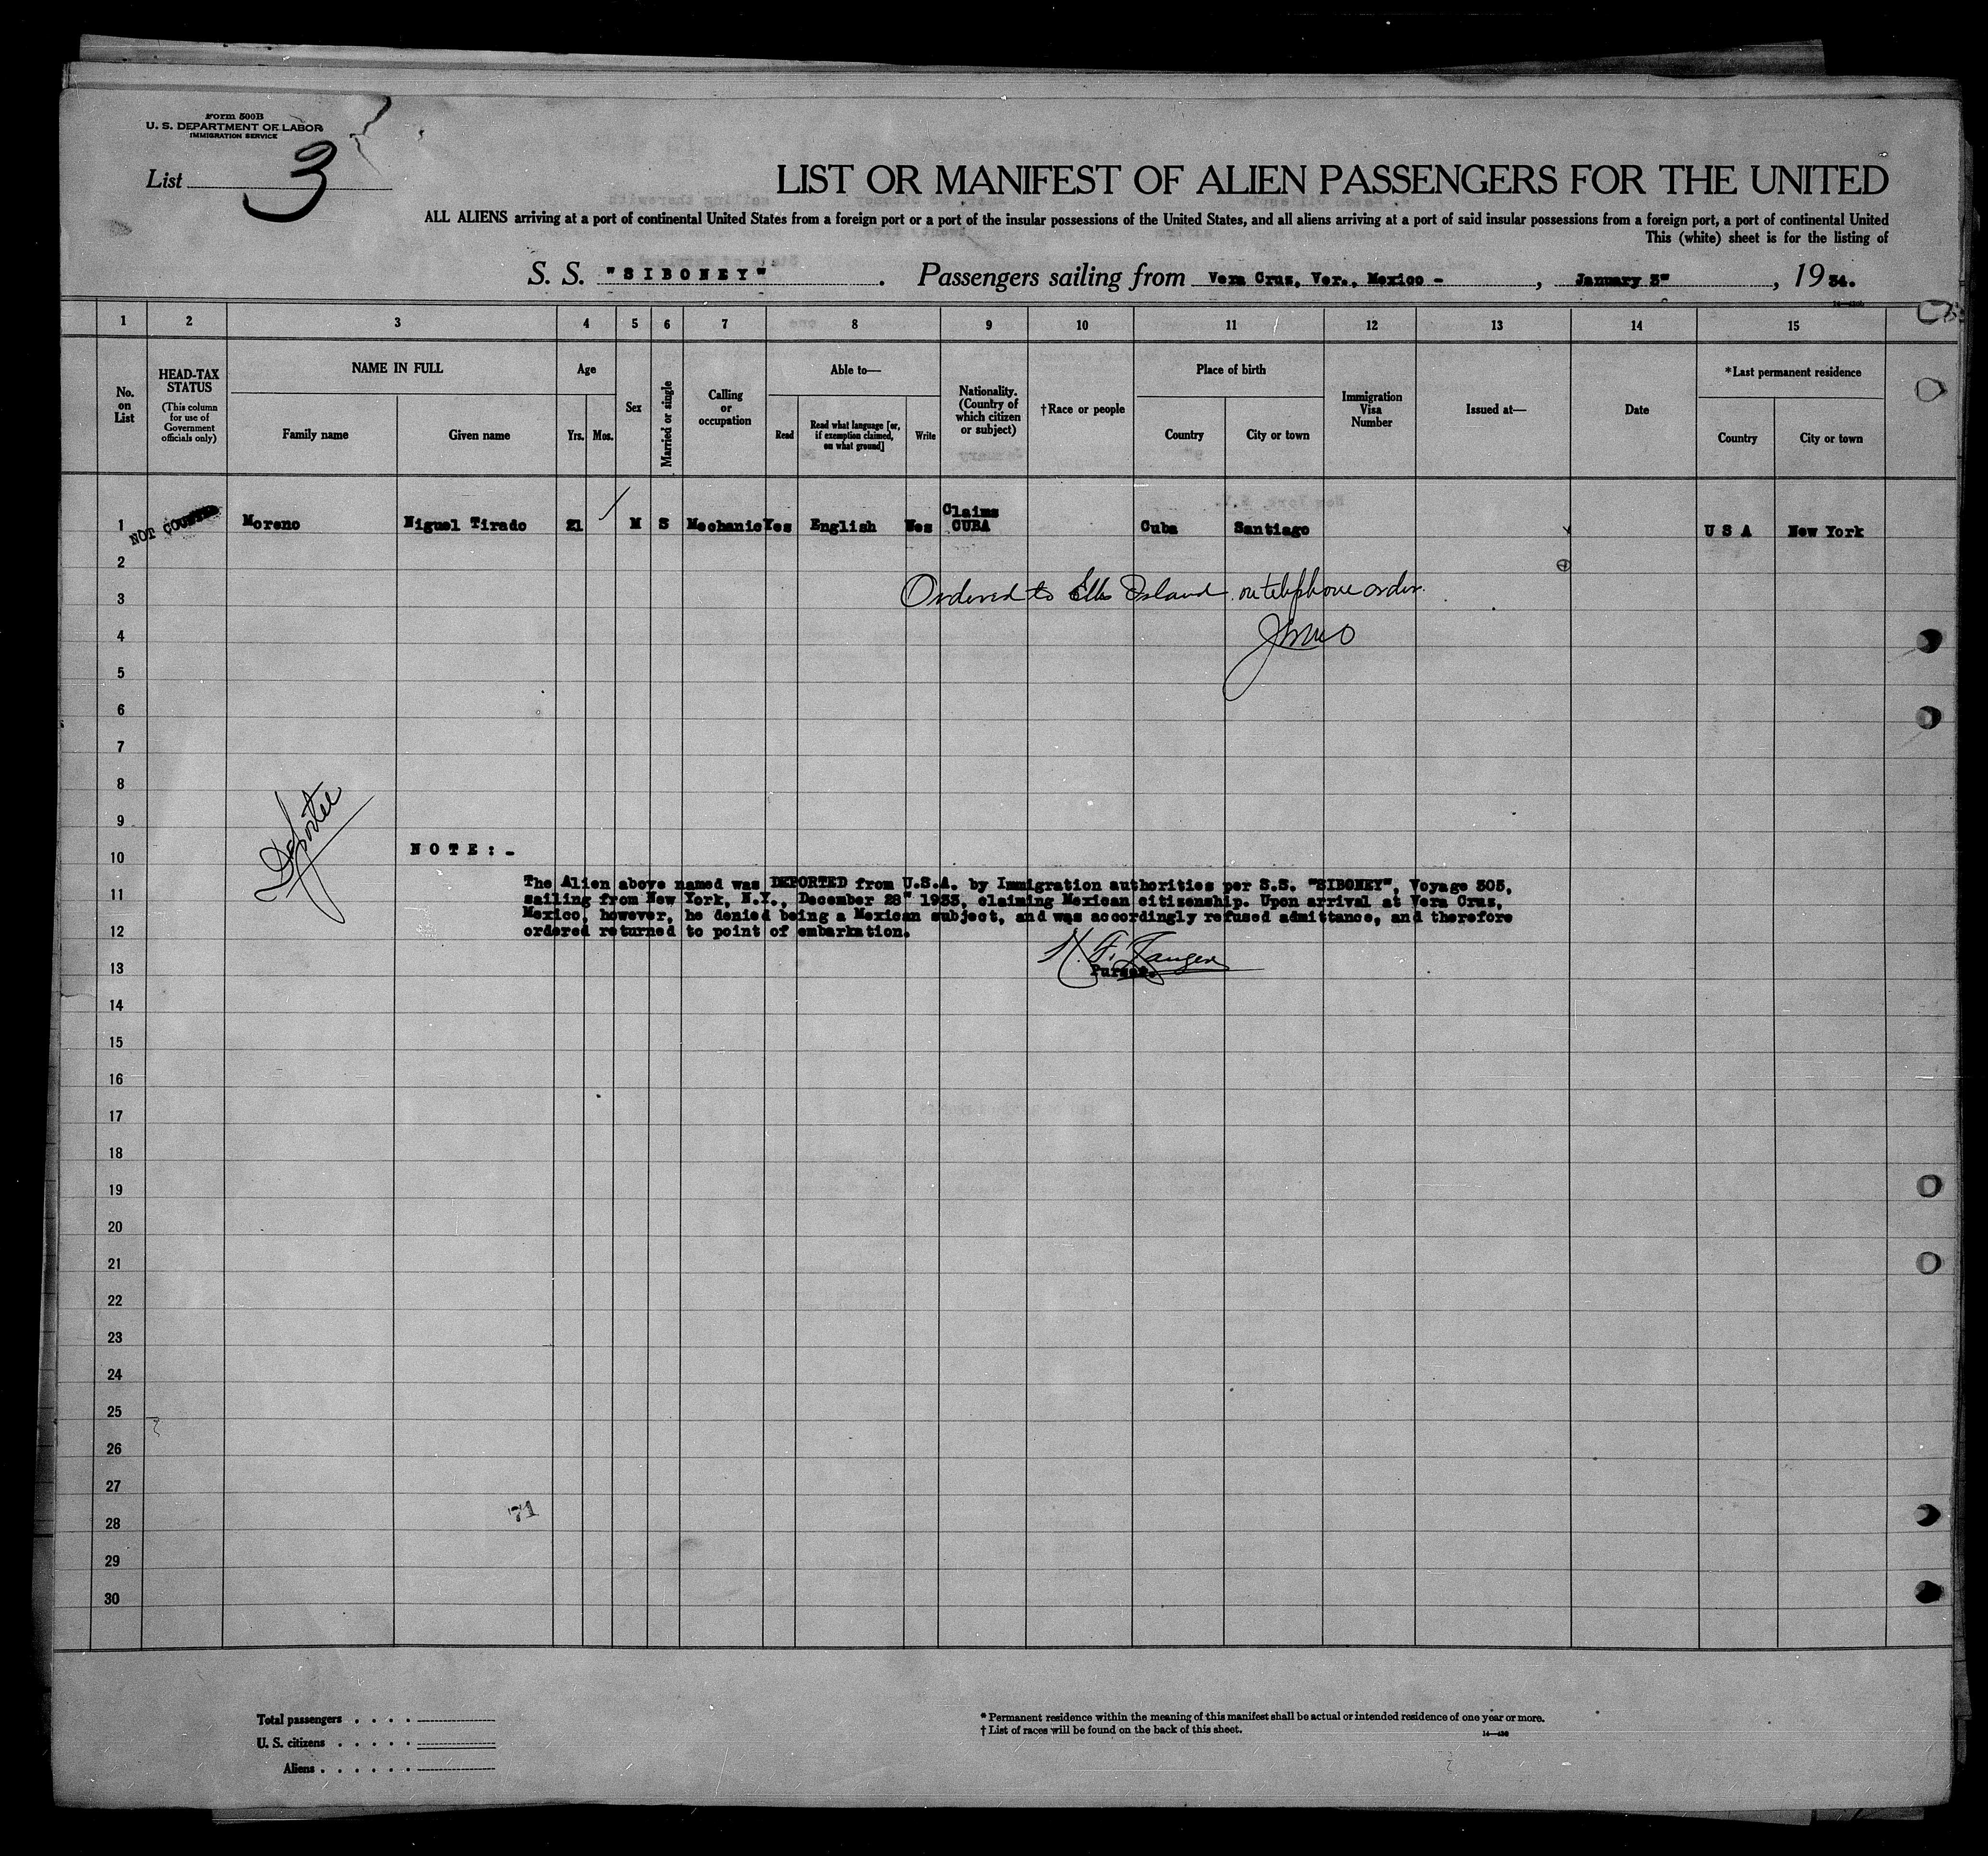 Form 500B
U. S. DEPARTMENT OF LABOR
IMMIGRATION SERVICE
List 3
LIST OR MANIFEST OF ALIEN PASSENGERS FOR THE UNITED
ALL ALIENS arriving at a port of continental United States from a foreign port or a port of the insular possessions of the United States, and all aliens arriving at a port of said insular possessions from a foreign port, a port of continental United
This (white) sheet is for the listing of
S. S. "SIBONEY" . Passengers sailing from Vera Cruz, Ver., Mexico - , January 3" , 19 34.
1 2 3 4 5 6 7 8 9 10 11 12 13 14 15
No. on List
HEAD-TAX STATUS
(This column for use of Government officials only)
NAME IN FULL
Family name
Given name
Age
Yrs. Mos.
Sex
Married or single
Calling or occupation
Able to—
Read
Read what language [or, if exemption claimed, on what ground]
Write
Nationality. (Country of which citizen or subject)
†Race or people
Place of birth
Country
City or town
Immigration Visa Number
Issued at—
Date
*Last permanent residence
Country
City or town
1 NOT COUNTED Moreno Miguel Tirado 21 M S Mechanic Yes English Yes Claims CUBA Cuba Santiago U S A New York
2
Ordered to Ellis Island on telephone order.
3
4
5
6
7
8
Deportee
9
NOTE:-
10
The Alien above named was DEPORTED from U.S.A. by Immigration authorities per S.S. "SIBONEY", Voyage 303,
11
sailing from New York, N.Y., December 28" 1933, claiming Mexican citizenship. Upon arrival at Vera Cruz,
Mexico, however, he denied being a Mexican subject, and was accordingly refused admittance, and therefore
12
ordered returned to point of embarkation.
13
Purser.
14
15
16
17
18
19
20
21
22
23
24
25
26
27
71
28
29
30
Total passengers . . . .
U. S. citizens . . . . .
Aliens . . . . . .
* Permanent residence within the meaning of this manifest shall be actual or intended residence of one year or more.
† List of races will be found on the back of this sheet.